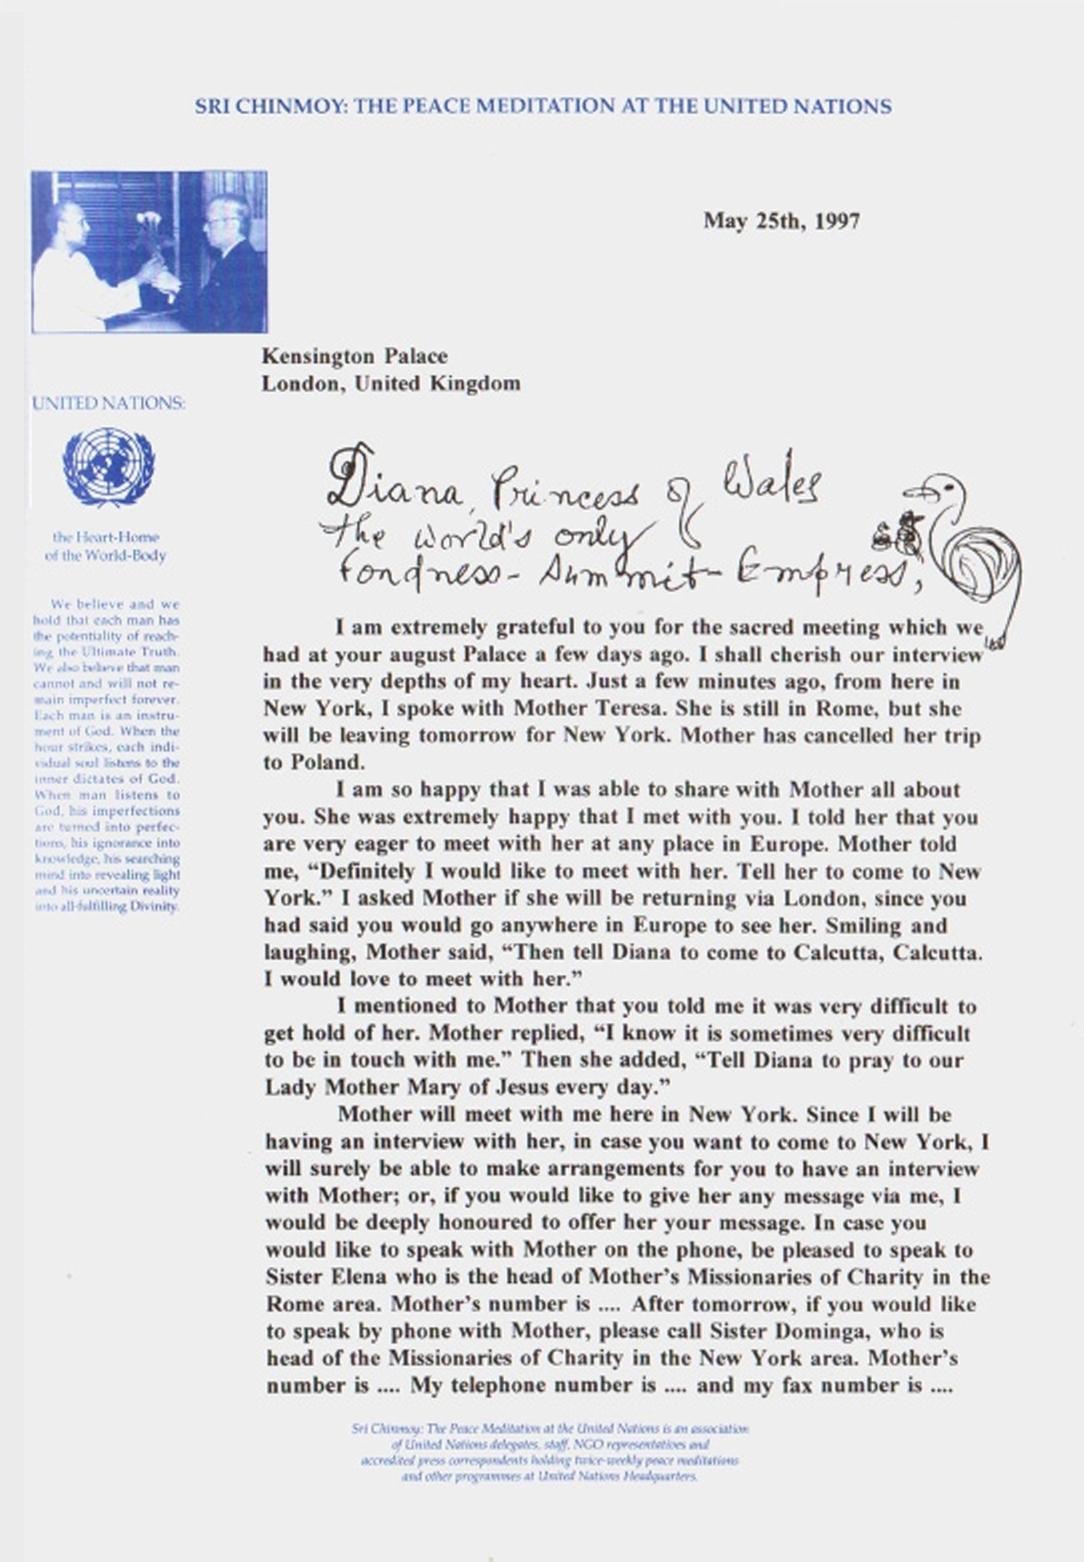 SRI CHINMOY: THE PEACE MEDITATION AT THE UNITED NATIONS
May 25th, 1997
Kensington Palace
London, United Kingdom
UNITED NATIONS:
the Heart-Home
of the World-Body
We believe and we
hold that each man has
the potentiality of reach-
ing the Ultimate Truth.
We also believe that man
cannot and will not re-
main imperfect forever.
Each man is an instru-
ment of God. When the
hour strikes, each indi-
vidual soul listens to the
inner dictates of God.
When man listens to
God, his imperfections
are turned into perfec-
tions, his ignorance into
knowledge, his searching
mind into revealing light
and his uncertain reality
into all-fulfilling Divinity.
Diana, Princess of Wales
the world's only
Fondness-Summit-Empress,
I am extremely grateful to you for the sacred meeting which we
had at your august Palace a few days ago. I shall cherish our interview
in the very depths of my heart. Just a few minutes ago, from here in
New York, I spoke with Mother Teresa. She is still in Rome, but she
will be leaving tomorrow for New York. Mother has cancelled her trip
to Poland.
I am so happy that I was able to share with Mother all about
you. She was extremely happy that I met with you. I told her that you
are very eager to meet with her at any place in Europe. Mother told
me, “Definitely I would like to meet with her. Tell her to come to New
York.” I asked Mother if she will be returning via London, since you
had said you would go anywhere in Europe to see her. Smiling and
laughing, Mother said, “Then tell Diana to come to Calcutta, Calcutta.
I would love to meet with her.”
I mentioned to Mother that you told me it was very difficult to
get hold of her. Mother replied, “I know it is sometimes very difficult
to be in touch with me.” Then she added, “Tell Diana to pray to our
Lady Mother Mary of Jesus every day.”
Mother will meet with me here in New York. Since I will be
having an interview with her, in case you want to come to New York, I
will surely be able to make arrangements for you to have an interview
with Mother; or, if you would like to give her any message via me, I
would be deeply honoured to offer her your message. In case you
would like to speak with Mother on the phone, be pleased to speak to
Sister Elena who is the head of Mother’s Missionaries of Charity in the
Rome area. Mother’s number is .... After tomorrow, if you would like
to speak by phone with Mother, please call Sister Dominga, who is
head of the Missionaries of Charity in the New York area. Mother’s
number is .... My telephone number is .... and my fax number is ....
Sri Chinmoy: The Peace Meditation at the United Nations is an association
of United Nations delegates, staff, NGO representatives and
accredited press correspondents holding twice-weekly peace meditations
and other programmes at United Nations Headquarters.